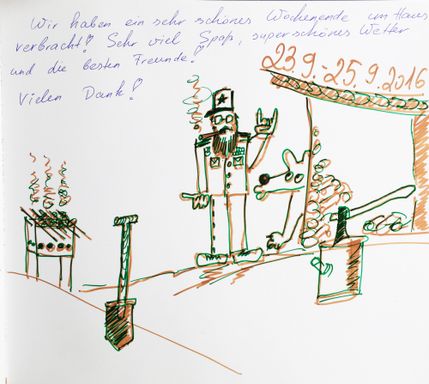 Wir haben ein sehr schönes Wochenende im Haus
verbracht! Sehr viel Spaß, superschönes Wetter
und die besten Freunde!
Vielen Dank!
23.9.-25.9.2016